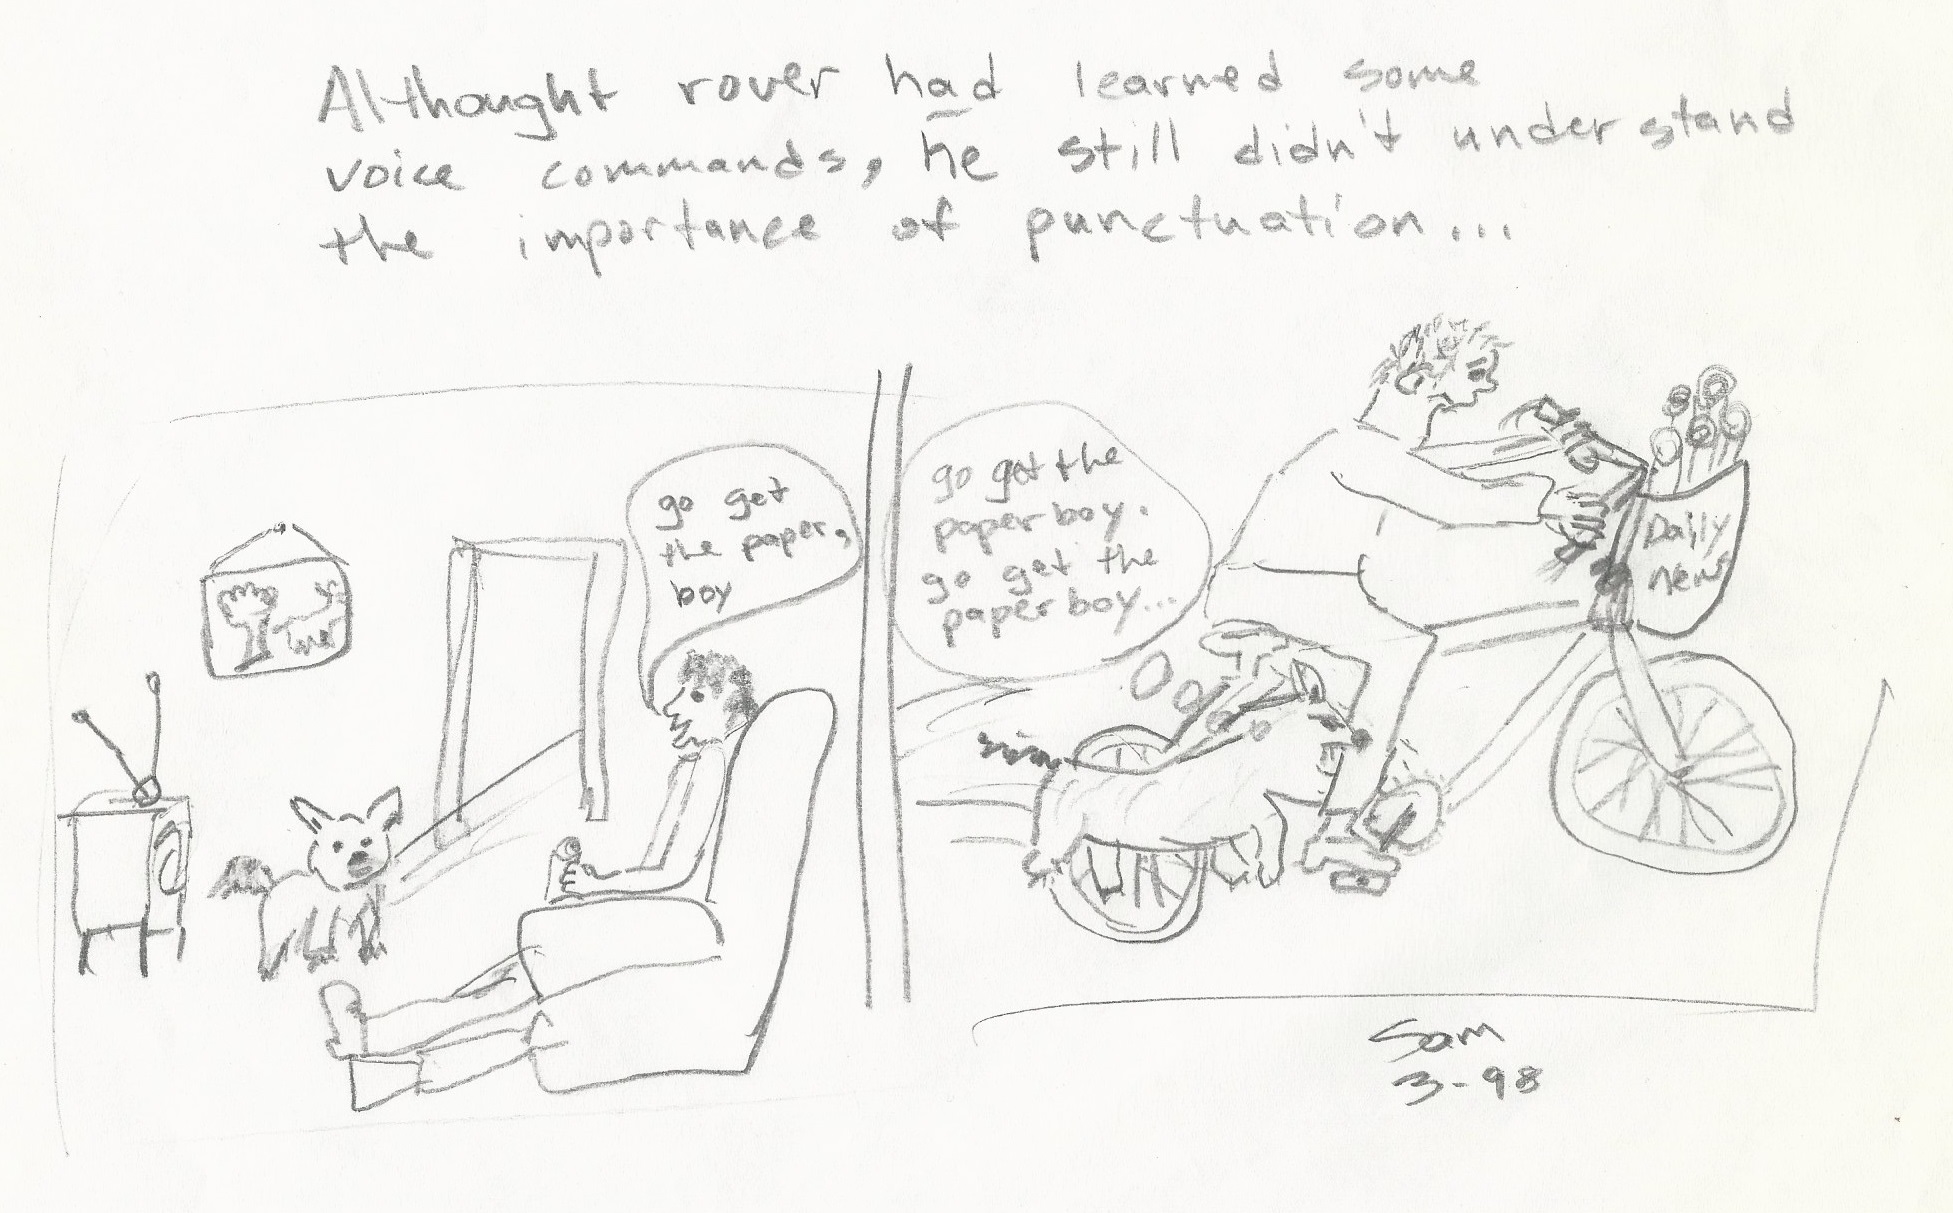 Althought rover had learned some
voice commands, he still didn't understand
the importance of punctuation...
go get
the paper,
boy
go get the
paper boy.
go get the
paper boy...
Daily
news
Sam
3-98